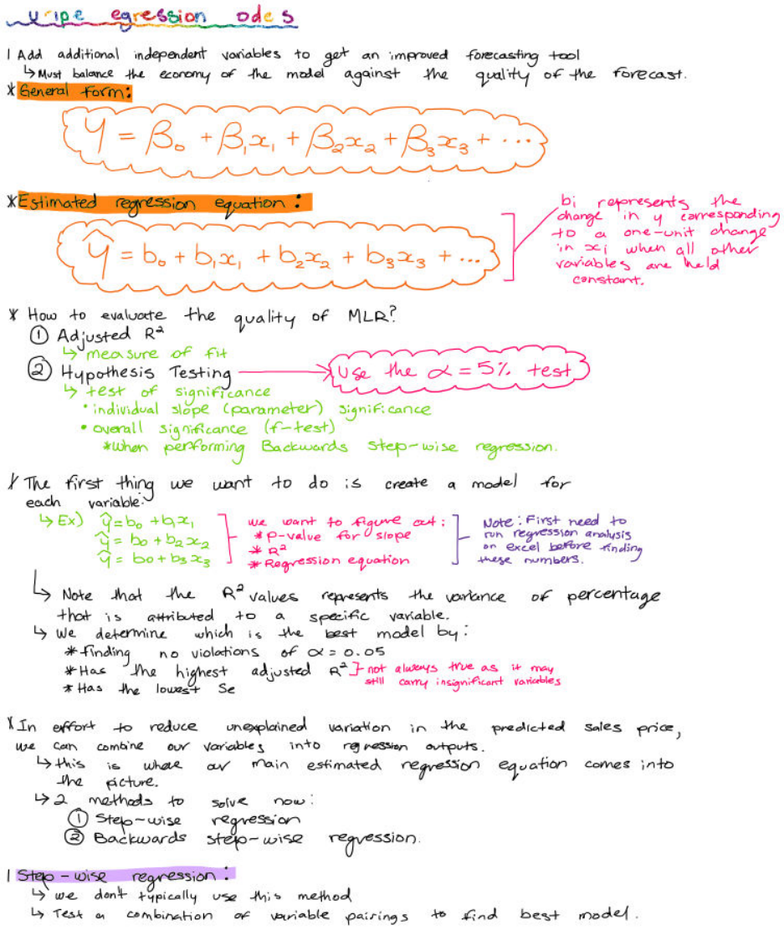 u ipe egression ode s
| Add additional independent variables to get an improved forecasting tool
↳ Must balance the economy of the model against the quality of the forecast.
* General form:
y = β₀ + β₁x₁ + β₂x₂ + β₃x₃ + ...
* Estimated regression equation:
ŷ = b₀ + b₁x₁ + b₂x₂ + b₃x₃ + ...
bi represents the
change in y corresponding
to a one-unit change
in xi when all other
variables are held
constant.
* How to evaluate the quality of MLR?
① Adjusted R²
↳ measure of fit
② Hypothesis Testing → use the α = 5% test
↳ test of significance
• individual slope (parameter) significance
• overall significance (f-test)
*when performing Backwards step-wise regression.
* The first thing we want to do is create a model for
each variable:
↳ Ex) ŷ = b₀ + b₁x₁
ŷ = b₀ + b₂x₂
ŷ = b₀ + b₃x₃
we want to figure out:
* P-value for slope
* R²
* Regression equation
Note: First need to
run regression analysis
on excel before finding
these numbers.
↳ Note that the R² values represents the variance of percentage
that is attributed to a specific variable.
↳ we determine which is the best model by:
* finding no violations of α = 0.05
* Has the highest adjusted R² } not always true as it may
still carry insignificant variables
* Has the lowest Se
* In effort to reduce unexplained variation in the predicted sales price,
we can combine our variables into regression outputs.
↳ this is where our main estimated regression equation comes into
the picture.
↳ 2 methods to solve now:
① Step-wise regression
② Backwards step-wise regression.
| Step-wise regression:
↳ we don't typically use this method
↳ Test a combination of variable pairings to find best model.